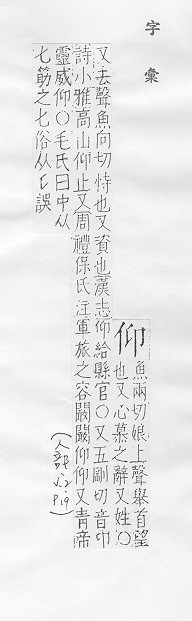 字彙
仰
魚兩切娘上聲舉首望
也又心慕之辭又姓〇
又去聲魚向切恃也又資也漢志仰給縣官〇又五剛切音卬
詩小雅高山仰止又周禮保氏注軍旅之容闞闞仰仰又青帝
靈威仰〇毛氏曰中从
七筯之七俗从匕誤
(人部 v.2 p.19)